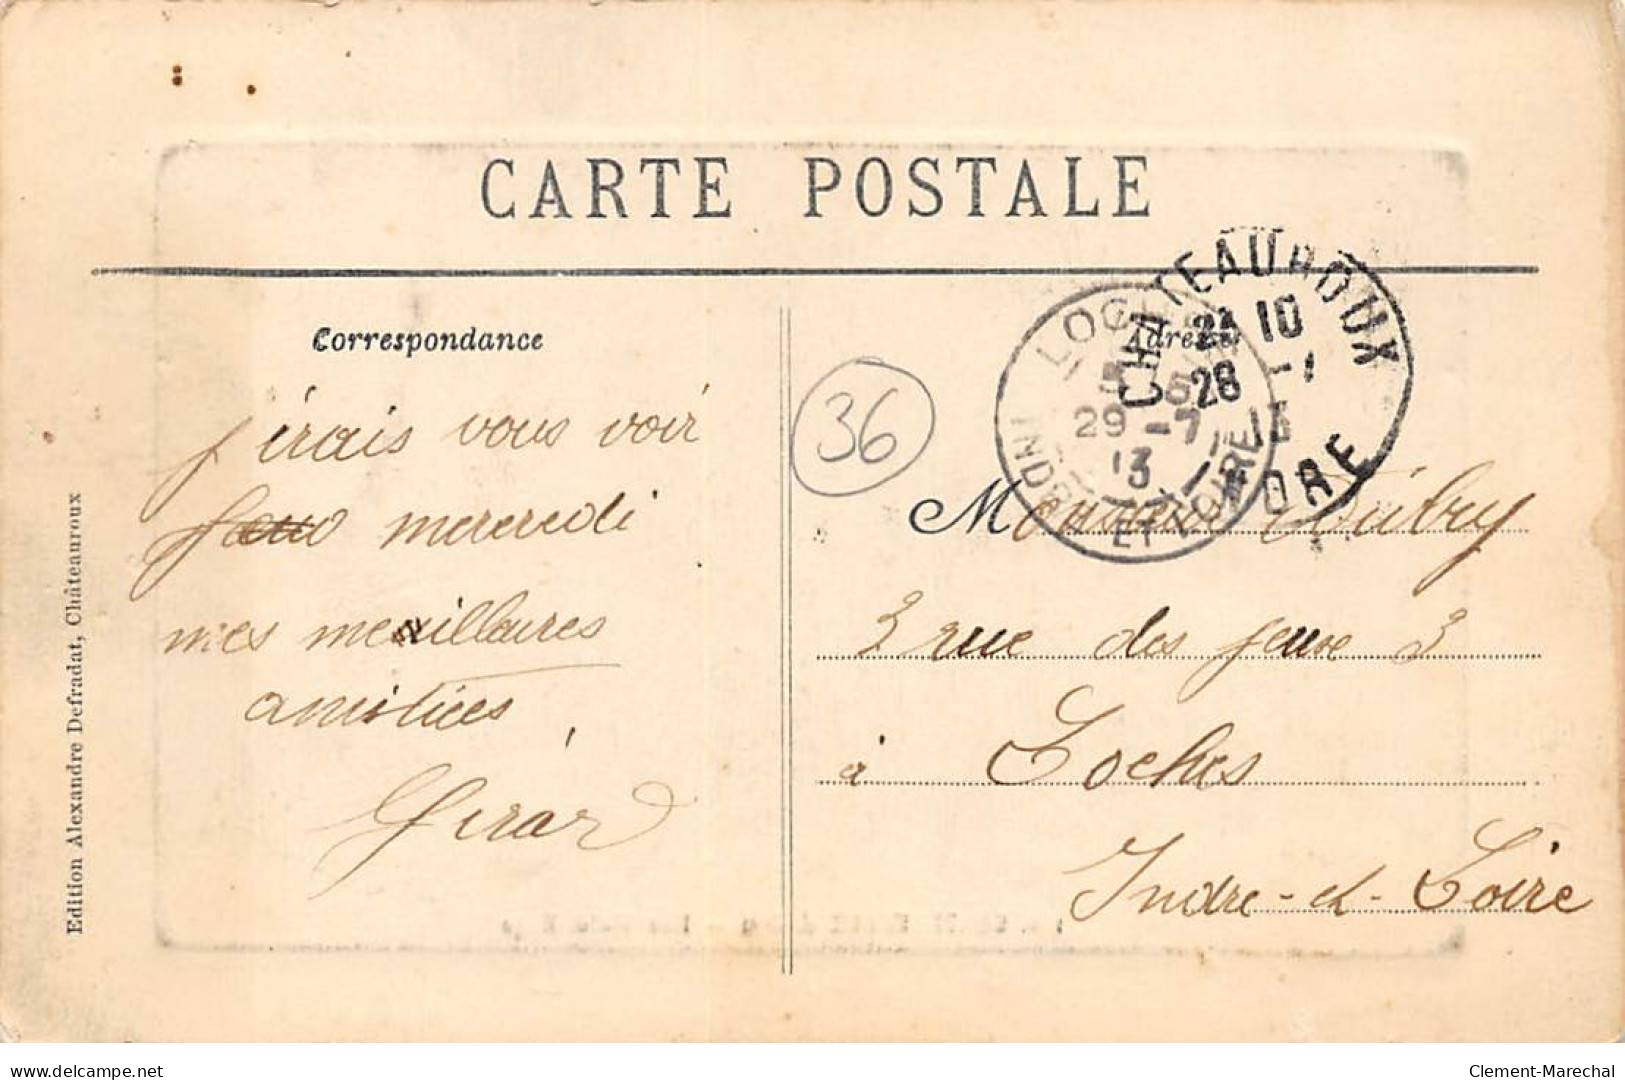 CARTE POSTALE
Correspondance
Adresse
j'irais vous voir
mercredi
mes meuillaires
amitiées
Girard
36
Monsieur Aubry
3 rue des jeux 3
à Loches
Indre-et-Loire
CHATEAUROUX
10
28 -7
13
INDRE
LOCHES
29 -7
13
INDRE ET LOIRE
Edition Alexandre Defradat, Châteauroux
delcampe.net
Clement-Marechal